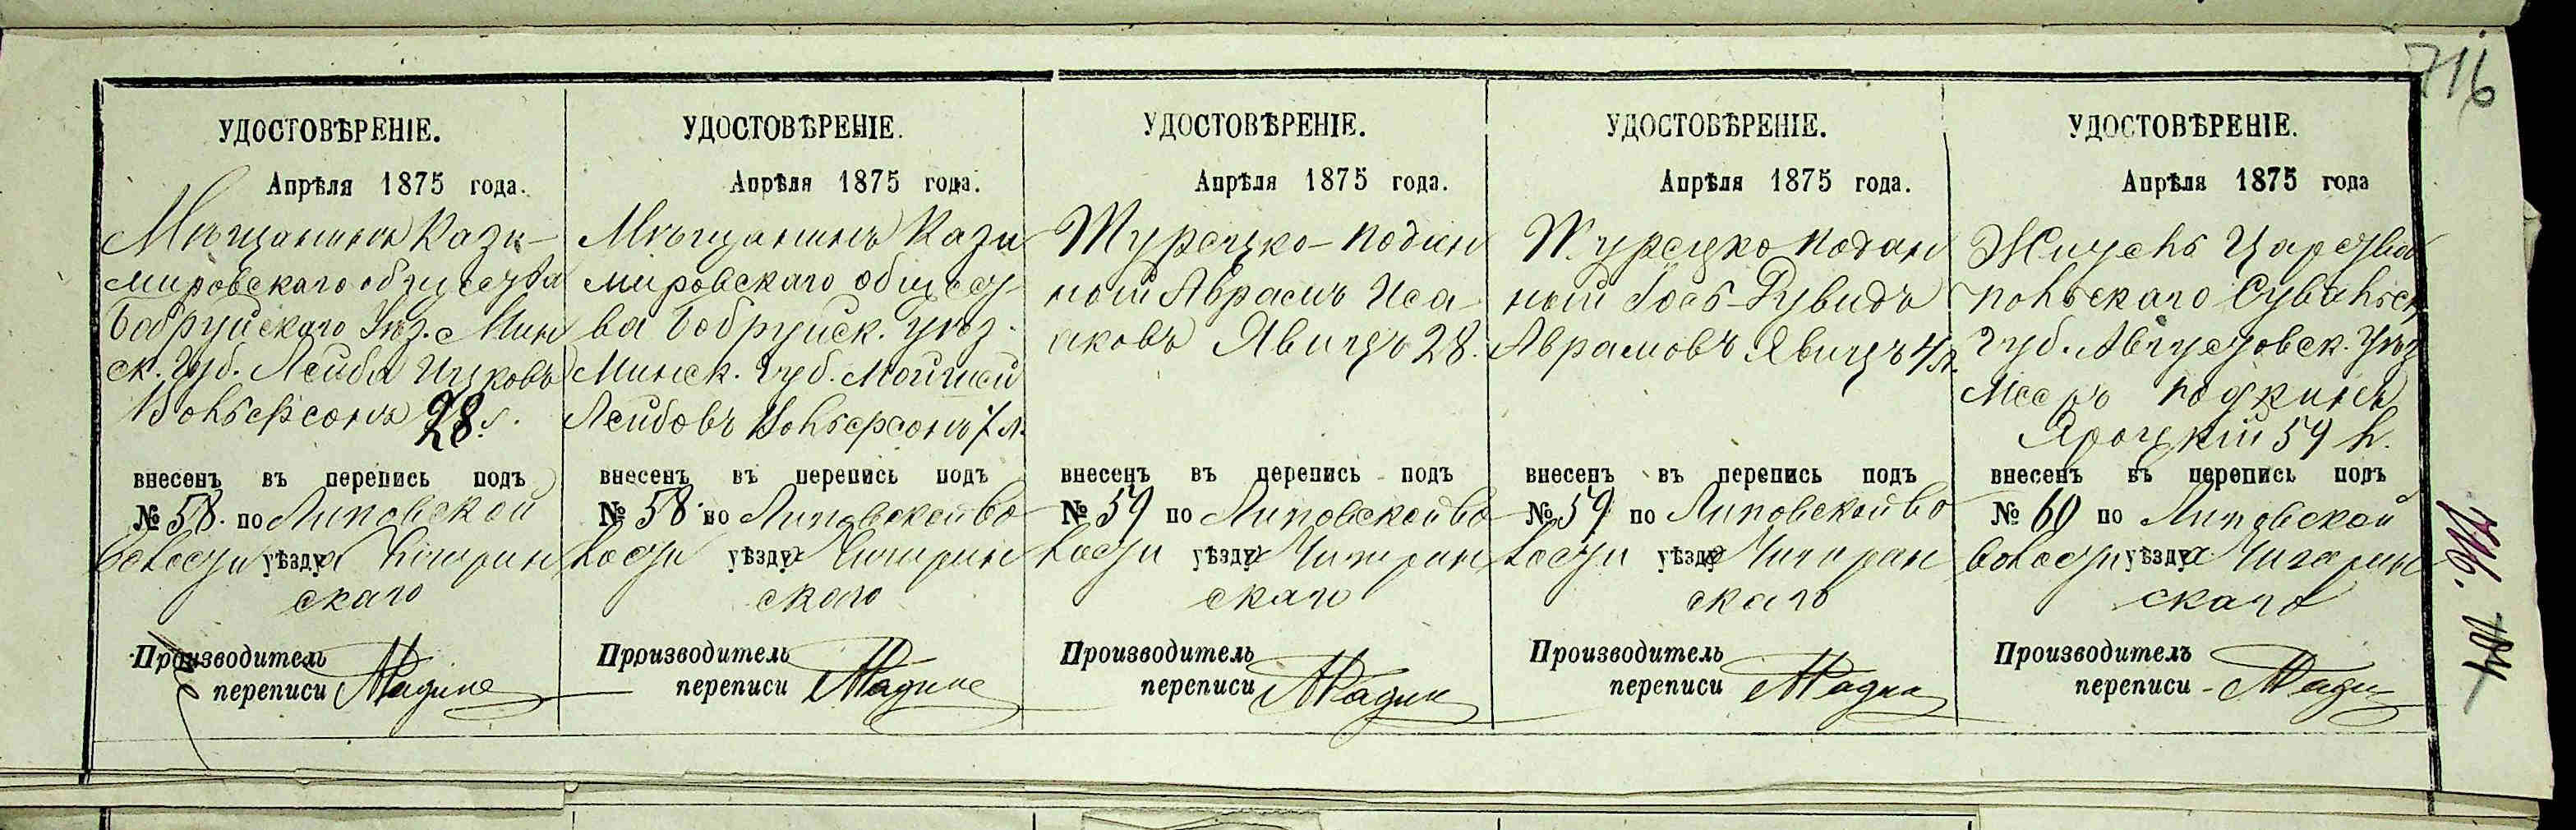 716
УДОСТОВѢРЕНІЕ.
Апрѣля 1875 года.
Мѣщанинъ Кази-
мировскаго общества
Бобруйскаго Уѣз. Мин
ск. Губ. Лейба Ицковъ
Вольфсонъ 28 л.
внесенъ въ перепись подъ
№ 58. по Липовской
волости уѣзда Чигирин
скаго
Производитель
переписи
УДОСТОВѢРЕНІЕ.
Апрѣля 1875 года.
Мѣщанинъ Кази
мировскаго общест-
ва Бобруйск. уѣз.
Минск. Губ. Мойшей
Лейбовъ Вольфсонъ 7 л.
внесенъ въ перепись подъ
№ 58 по Липовской во
лости уѣзда Чигирин
скаго
Производитель
переписи
УДОСТОВѢРЕНІЕ.
Апрѣля 1875 года.
Турецко-подан
ный Аврамъ Иса-
аковъ Явицъ 28.
внесенъ въ перепись подъ
№ 59 по Липовской во
лости уѣзда Чигирин
скаго
Производитель
переписи
УДОСТОВѢРЕНІЕ.
Апрѣля 1875 года.
Турецко подан
ный Іось-Дувидъ
Аврамовъ Явицъ 4 л.
внесенъ въ перепись подъ
№ 59 по Липовской во
лости уѣзда Чигирин
скаго
Производитель
переписи
УДОСТОВѢРЕНІЕ.
Апрѣля 1875 года
Житель
Сувальск
Губ. Августовск. Уѣз
Яроцкій 59 л.
внесенъ въ перепись подъ
№ 60 по Липовской
волости уѣзда Чигирин
скаго
Производитель
переписи